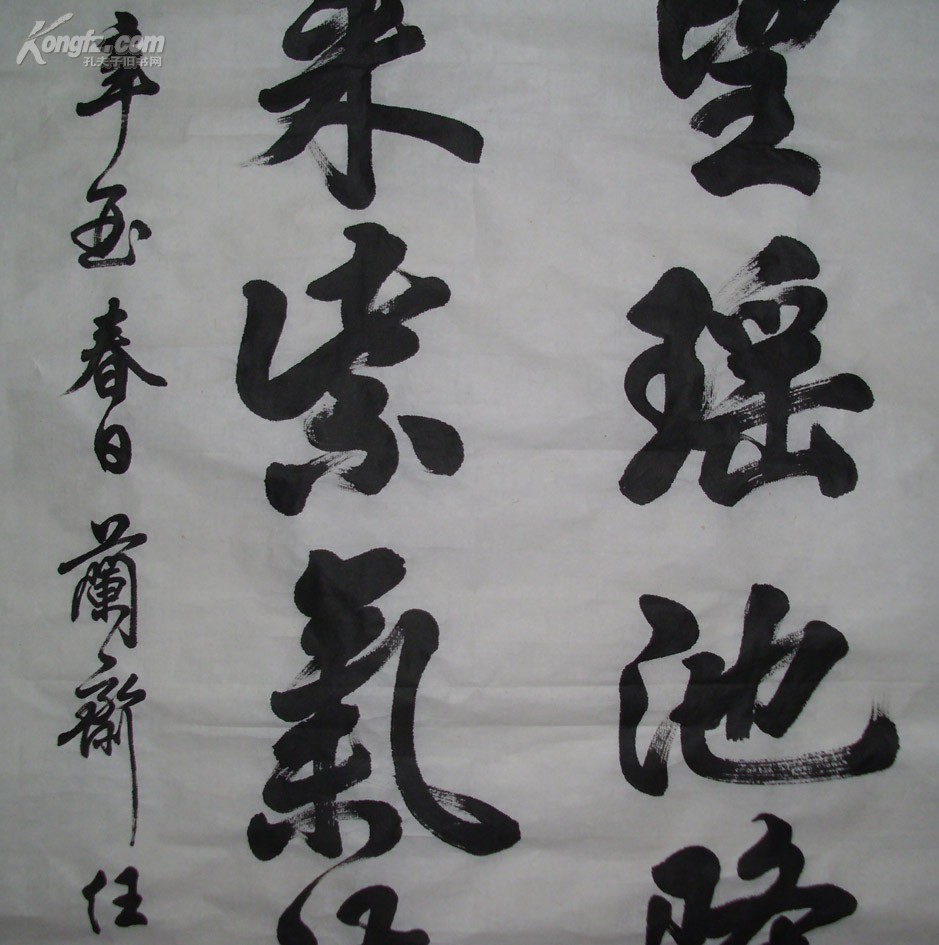 望瑶池降
来紫氣
辛
春日蘭齋任
Kongfz.com
孔夫子旧书网